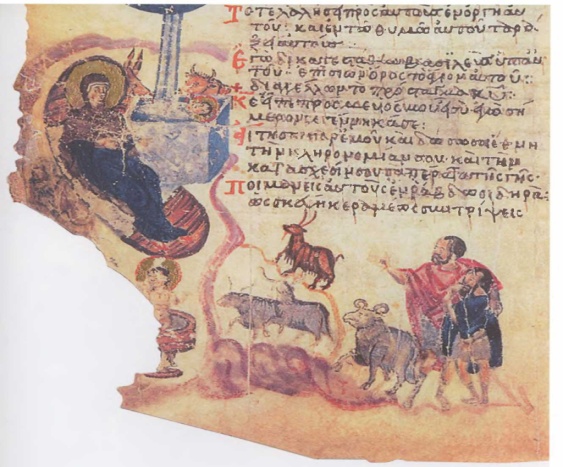 Τότε λαλήσει πρὸς αὐτοὺς ἐν ὀργῆ αὐ
τοῦ· καὶ ἐν τῶ θυμῶ αὐτοῦ ταρά
ξει αὐτούς:
Ἐγὼ δὲ κατεστάθην βασιλεὺς ὑπ' αὐ
τοῦ· ἐπὶ σιὼν ὄρος τὸ ἅγιον αὐτοῦ:
διαγγέλλων τὸ πρόσταγμα κυ:
Κς εἶπε πρός με υἱός μου εἶ σὺ ἐγὼ σή
μερον γεγέννηκά σε:
Αἴτησαι παρ' ἐμοῦ καὶ δώσω σοι ἔθνη
τὴν κληρονομίαν σου· καὶ τὴν
κατάσχεσίν σου τὰ πέρατα τῆς γῆς
Ποιμανεῖς αὐτοὺς ἐν ῥάβδω σιδηρᾶ·
ὡς σκεύη κεραμέως συντρίψεις